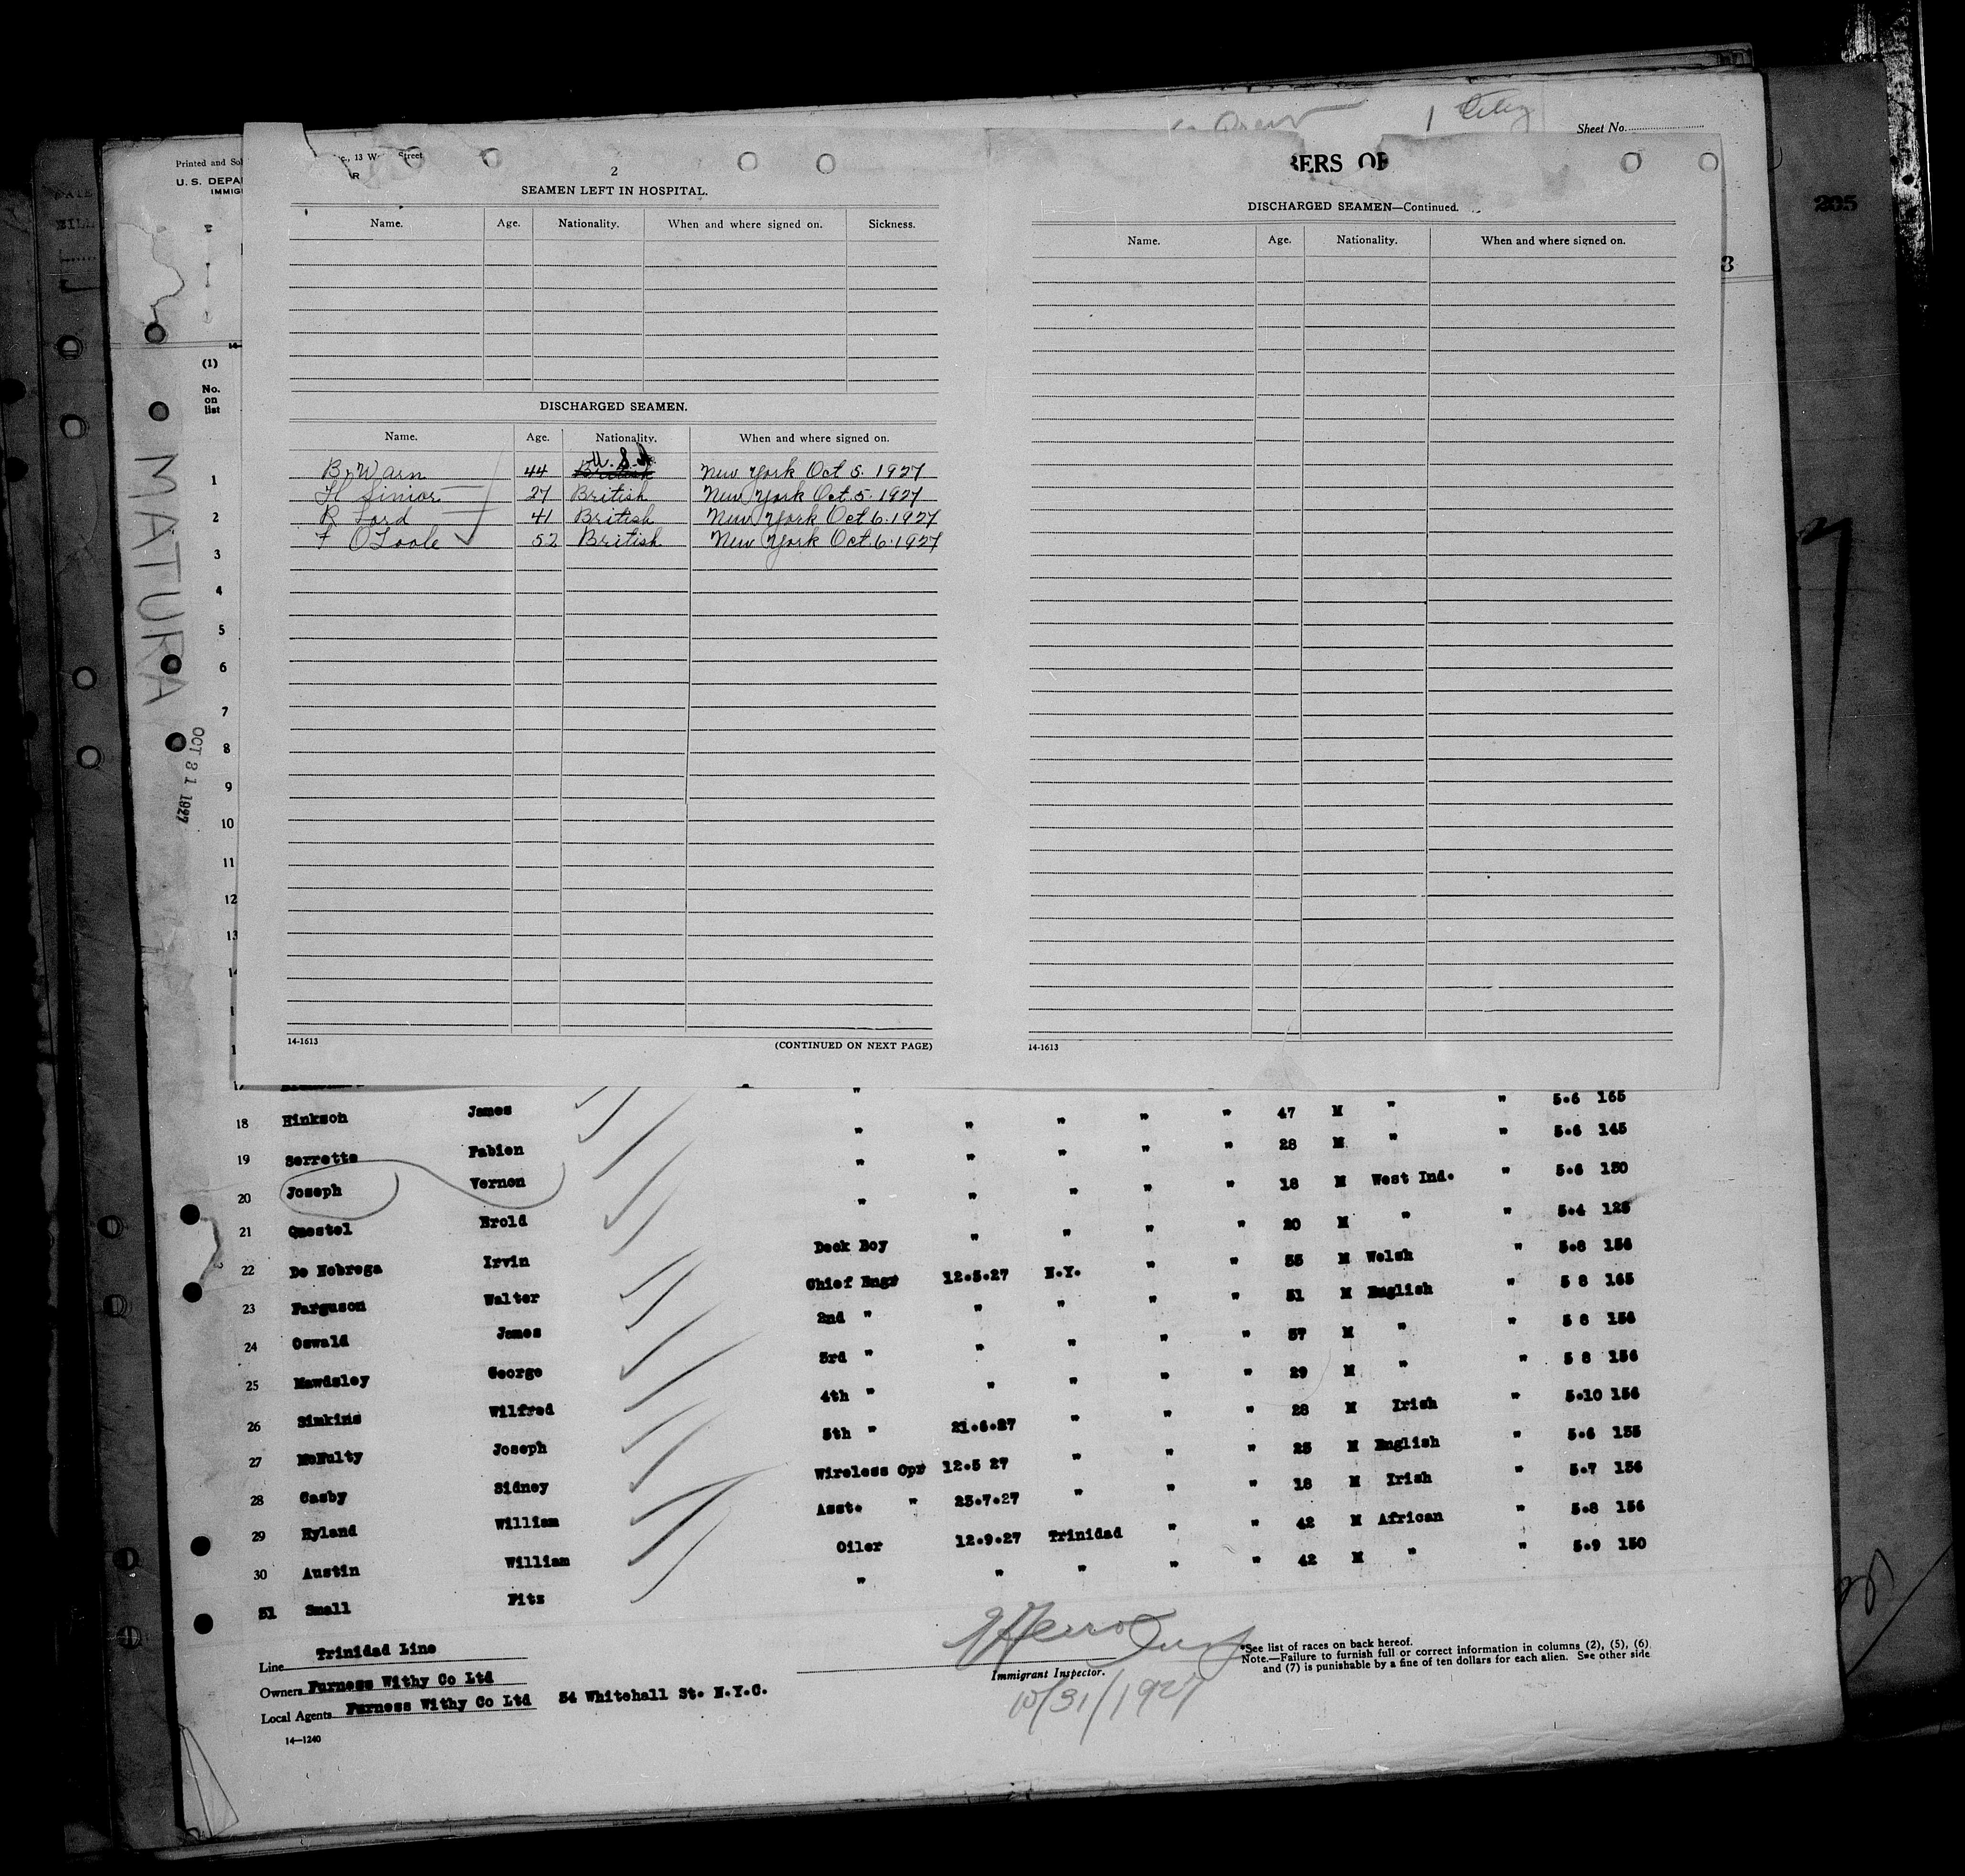 1 City
Sheet No.
Printed and Sol
U. S. DEPA
IMMIG
c., 13 W Street
R
2
SEAMEN LEFT IN HOSPITAL.
Name. Age. Nationality. When and where signed on. Sickness.
DISCHARGED SEAMEN.
Name. Age. Nationality. When and where signed on.
B. Warn 44 U.S.A. British New York Oct 5. 1927
H Sinior 27 British New York Oct. 5. 1927
R Lord 41 British New York Oct 6. 1927
F O'Toole 52 British New York Oct. 6. 1927
14-1613 (CONTINUED ON NEXT PAGE)
BERS OF
DISCHARGED SEAMEN—Continued.
Name. Age. Nationality. When and where signed on.
14-1613
205
3
(1)
No.
on
list
1
2
3
4
5
6
7
8
9
10
11
12
13
MATURA
OCT 31 1927
" 5.6 165
18 Hinkson James " " " " " 47 M " " 5.6 145
19 Serrette Fabien " " " " " 28 M " " 5.6 130
20 Joseph Vernon " " " " " 18 M West Ind. " 5.4 125
21 Questel Erold " " " " " 20 M " "
22 De Nobrega Irvin Deck Boy " " " " 35 M Welsh " 5.8 156
23 Farguson Walter Chief Engr 12.5.27 N.Y. " " 51 M English " 5 8 165
24 Oswald James 2nd " " " " " 37 M " " 5 8 156
25 Mawdsley George 3rd " " " " " 29 M " " 5 8 156
26 Simkins Wilfred 4th " " " " " 28 M Irish " 5.10 156
27 McNulty Joseph 5th " 21.6.27 " " " 25 M English " 5.6 135
28 Casby Sidney Wireless Opr 12.5 27 " " " 18 M Irish " 5.7 156
29 Hyland William Asst. " 23.7.27 " " " 42 M African " 5.8 156
30 Austin William Oiler 12.9.27 Trinidad " " 42 M " " 5.9 150
31 Small Fitz " " " " "
Line Trinidad Line
Owners Furness Withy Co Ltd
Local Agents Furness Withy Co Ltd 34 Whitehall St. N.Y.C.
14—1240
Immigrant Inspector.
10/31/1927
*See list of races on back hereof.
Note.—Failure to furnish full or correct information in columns (2), (5), (6)
and (7) is punishable by a fine of ten dollars for each alien. See other side